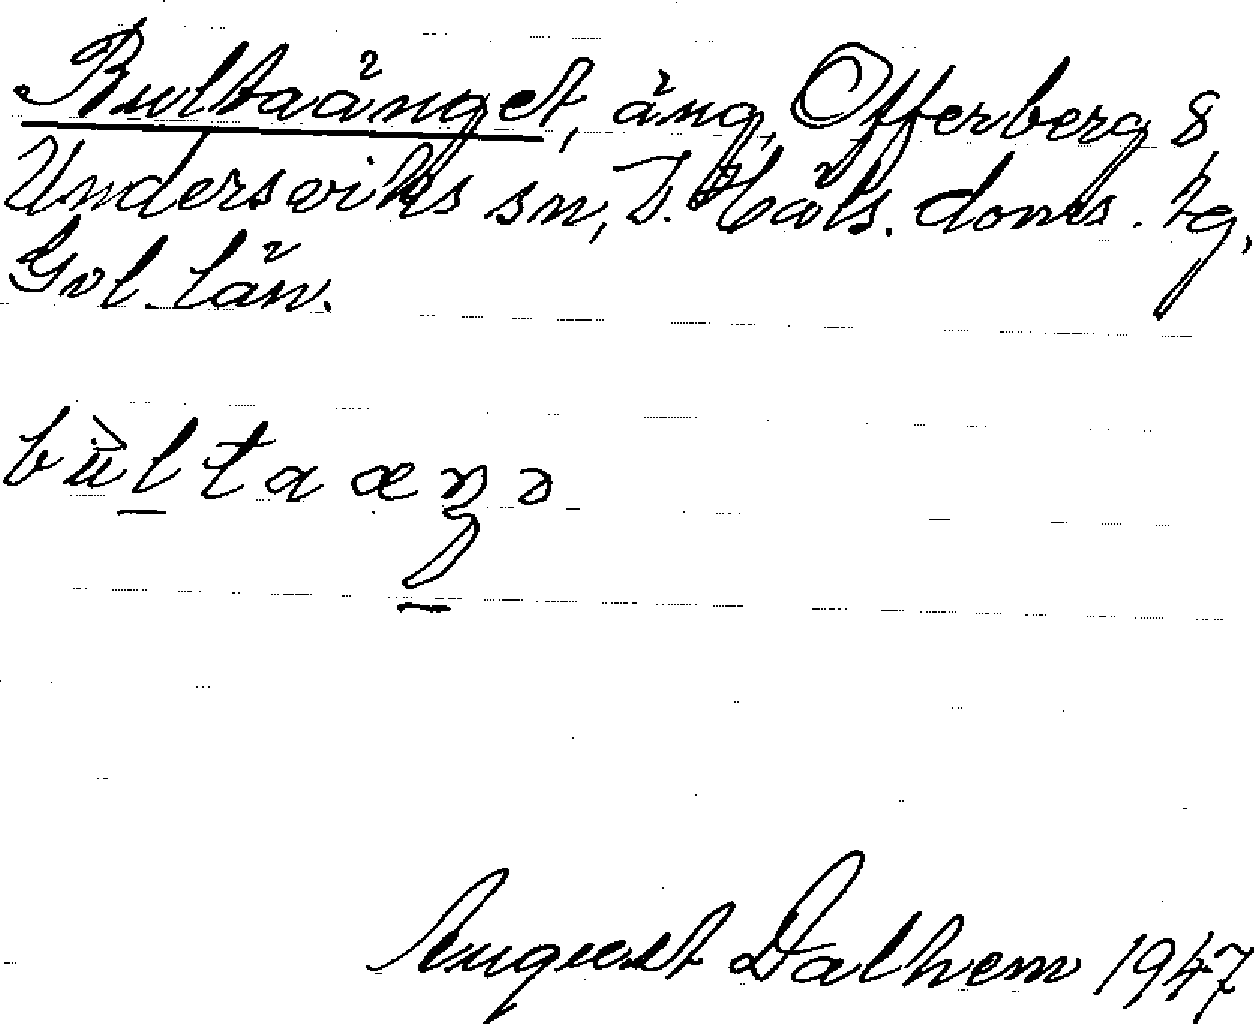 Bultaänget, äng, Offerberg 8,
Undersviks sn, V. Häls. doms. tg.
Gvl. län.
bùltaæŋə
August Dalhem 1947